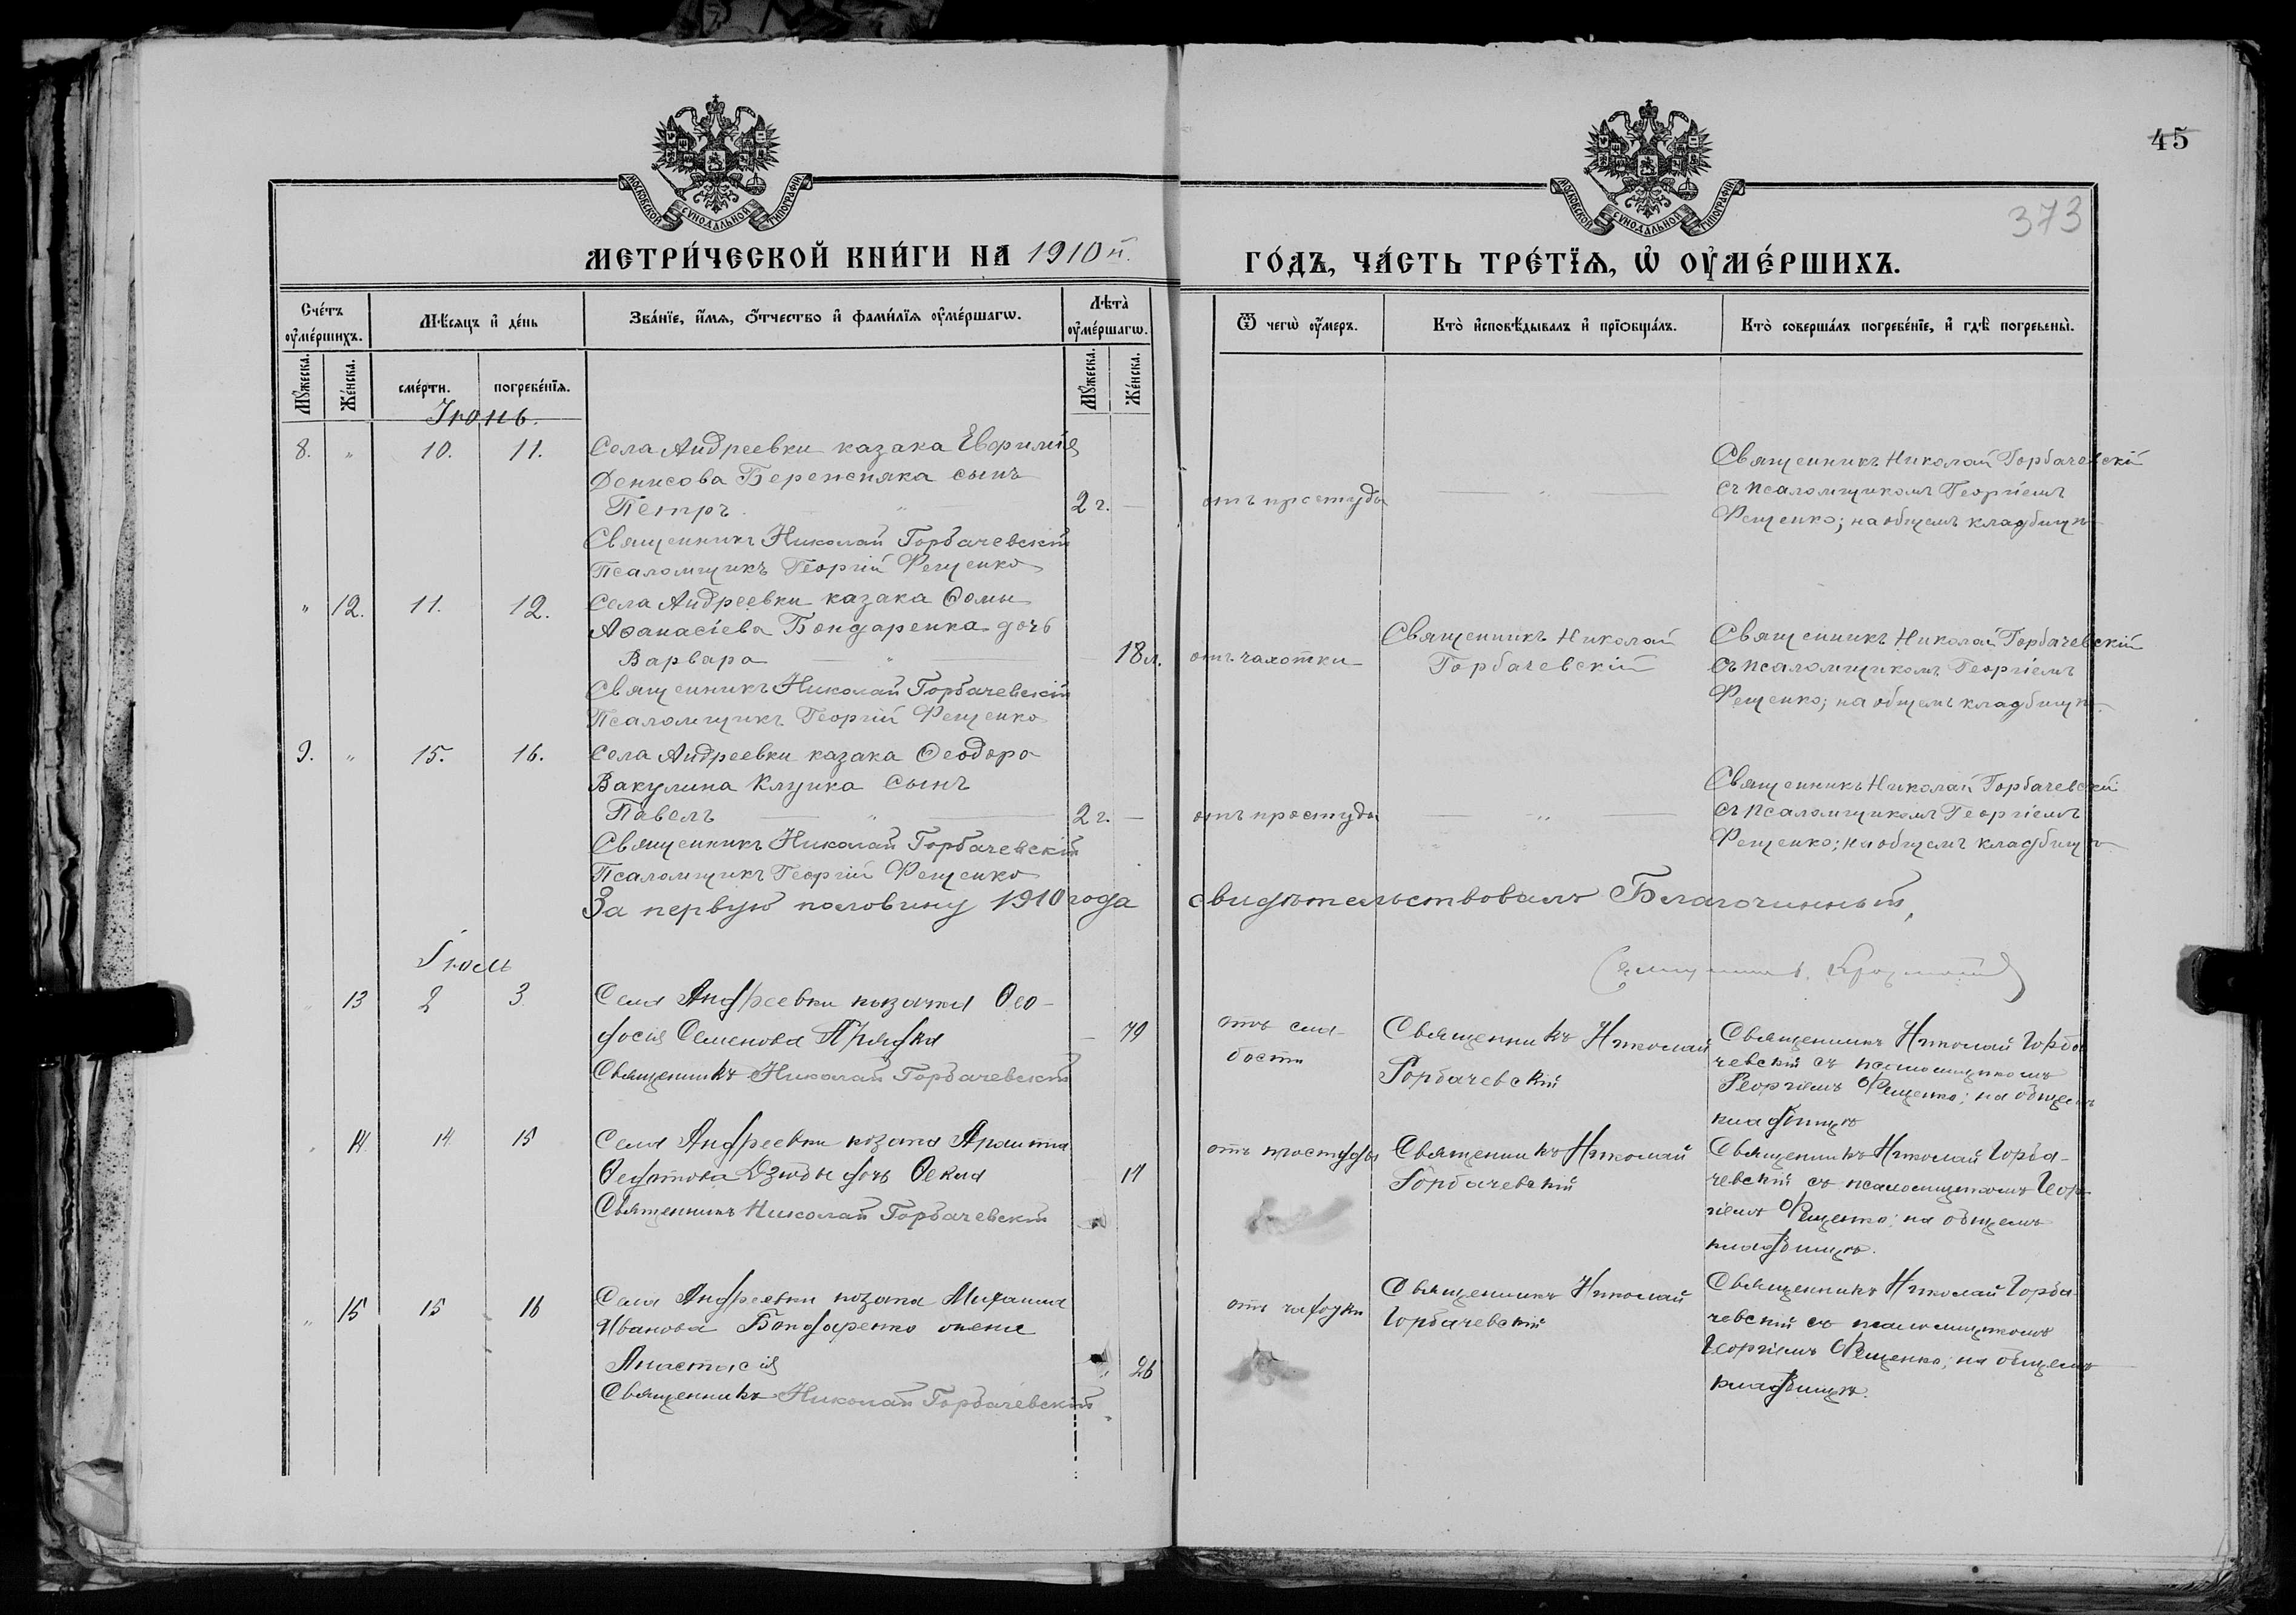 45
373
МОСКОВСКОЙ СѴНОДАЛЬНОЙ ТИПОГРАФІИ
МОСКОВСКОЙ СѴНОДАЛЬНОЙ ТИПОГРАФІИ
МЕТРИ́ЧЕСКОЙ КНИ́ГИ НА 1910й. ГО́ДЪ, ЧА́СТЬ ТРЕ́ТЇѦ, Ѡ ОУ҆МЕ́РШИХЪ.
Сче́тъ оу҆ме́ршихъ.
Мꙋ́жеска.
Же́нска.
Мѣ́сѧцъ и҆ де́нь
сме́рти.
погребе́нїѧ.
Зва́нїе, и҆́мѧ, ѻ҆́тчество и҆ фами́лїѧ оу҆ме́ршагѡ.
Лѣ́та оу҆ме́ршагѡ.
Мꙋ́жеска.
Же́нска.
Ѿ чегѡ̀ оу҆́меръ.
Кто̀ и҆сповѣ́дывалъ и҆ прїѡбща́лъ.
Кто̀ соверша́лъ погребе́нїе, и҆ гдѣ̀ погребены̀.
Іюнь.
8. „ 10. 11.
Села Андреевки казака Евфимія
Денисова Бережняка сынъ
Петръ — „ — 2 г. —
Священникъ Николай Горбачевскій
Псаломщикъ Георгій Фещенко
отъ простуды
— „
Священникъ Николай Горбачевскій
съ псаломщикомъ Георгіемъ
Фещенко; на общемъ кладбищѣ
„ 12. 11. 12.
Села Андреевки казака Ѳомы
Аѳанасіева Бондаренка дочь
Варвара — „ — 18 л.
Священникъ Николай Горбачевскій
Псаломщикъ Георгій Фещенко
отъ чахотки
Священникъ Николай
Горбачевскій
Священникъ Николай Горбачевскій
съ псаломщикомъ Георгіемъ
Фещенко; на общемъ кладбищѣ
9. „ 15. 16.
Села Андреевки казака Ѳеодора
Вакулина Клунка сынъ
Павелъ — „ — 2 г. —
Священникъ Николай Горбачевскій
Псаломщикъ Георгій Фещенко
отъ простуды
— „ —
Священникъ Николай Горбачевскій
съ псаломщикомъ Георгіемъ
Фещенко; на общемъ кладбищѣ
За первую половину 1910 года свидѣтельствовалъ Благочинный,
Священникъ
Іюль
„ 13 2 3
Села Андреевки козачка Ѳео-
досія Семенова — 79
Священникъ Николай Горбачевскій
отъ сла-
бости
Священникъ Николай
Горбачевскій
Священникъ Николай Горба
чевскій съ псаломщикомъ
Георгіемъ Фещенко; на общемъ
кладбищѣ
„ 14 14 15
Села Андреевки козака
дочь Ѳекла
Священникъ Николай Горбачевскій
отъ простуды
Священникъ Николай
Горбачевскій
Священникъ Николай Горба-
чевскій съ псаломщикомъ Геор-
гіемъ Фещенко; на общемъ
кладбищѣ.
„ 15 15 16
Села Андреевки козака Михаила
Иванова Бондаренко жена
Анастасія „ 26
Священникъ Николай Горбачевскій
отъ чахотки
Священникъ Николай
Горбачевскій
Священникъ Николай Горба-
чевскій съ псаломщикомъ
Георгіемъ Фещенко; на общемъ
кладбищѣ.